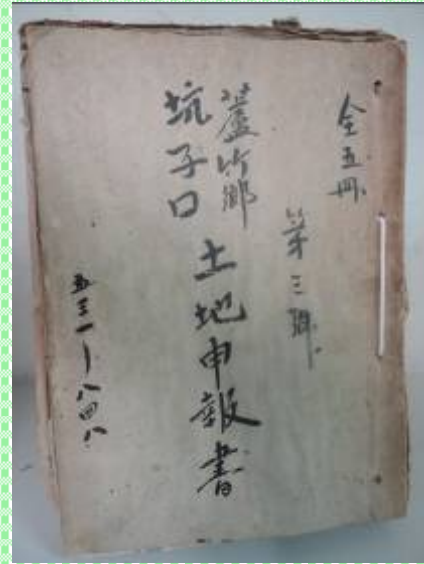 全五冊
第三冊
蘆竹鄉
坑子口
土地申報書
五三一–八四八